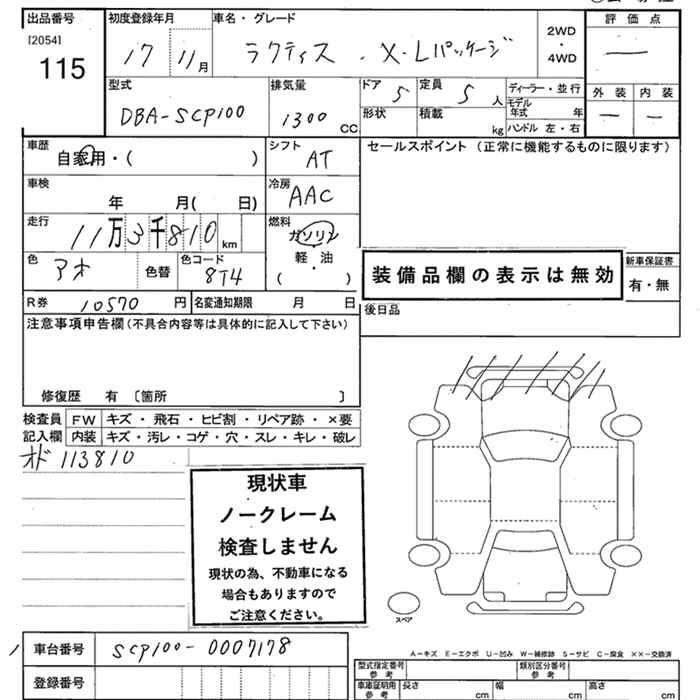 出品番号 初度登録年月 車名・グレード 評価点
[2054] 115 17 11月 ラクティス . X-Lパッケージ 2WD・4WD —
型式 排気量 ドア 5 定員 5人 ディーラー・並行 外装 内装
DBA-SCP100 1300 CC 形状 積載 kg モデル年式 年 — —
ハンドル 左・右
車歴 シフト セールスポイント (正常に機能するものに限ります)
自家用・( ) AT
車検 冷房
年 月( 日) AAC
走行 燃料
11万3千810 km ガソリン
軽・油
( )
色 色コード
アオ 色替 8T4
装備品欄の表示は無効
新車保証書
有・無
R券 10570 円 名変通知期限 月 日 後日品
注意事項申告欄(不具合内容等は具体的に記入して下さい)
修復歴 有 〔箇所 〕
検査員 FW キズ・飛石・ヒビ割・リペア跡・×要
記入欄 内装 キズ・汚レ・コゲ・穴・スレ・キレ・破レ
オド 113810
現状車
ノークレーム
検査しません
現状の為、不動車になる
場合もありますので
ご注意ください。
スペア
車台番号 SCP100-0007178
登録番号
A-キズ E-エクボ U-凹み W-補修跡 S-サビ C-腐食 ××-交換済
型式指定番号 参考 類別区分番号 参考
車庫証明用 参考 長さ cm 幅 cm 高さ cm